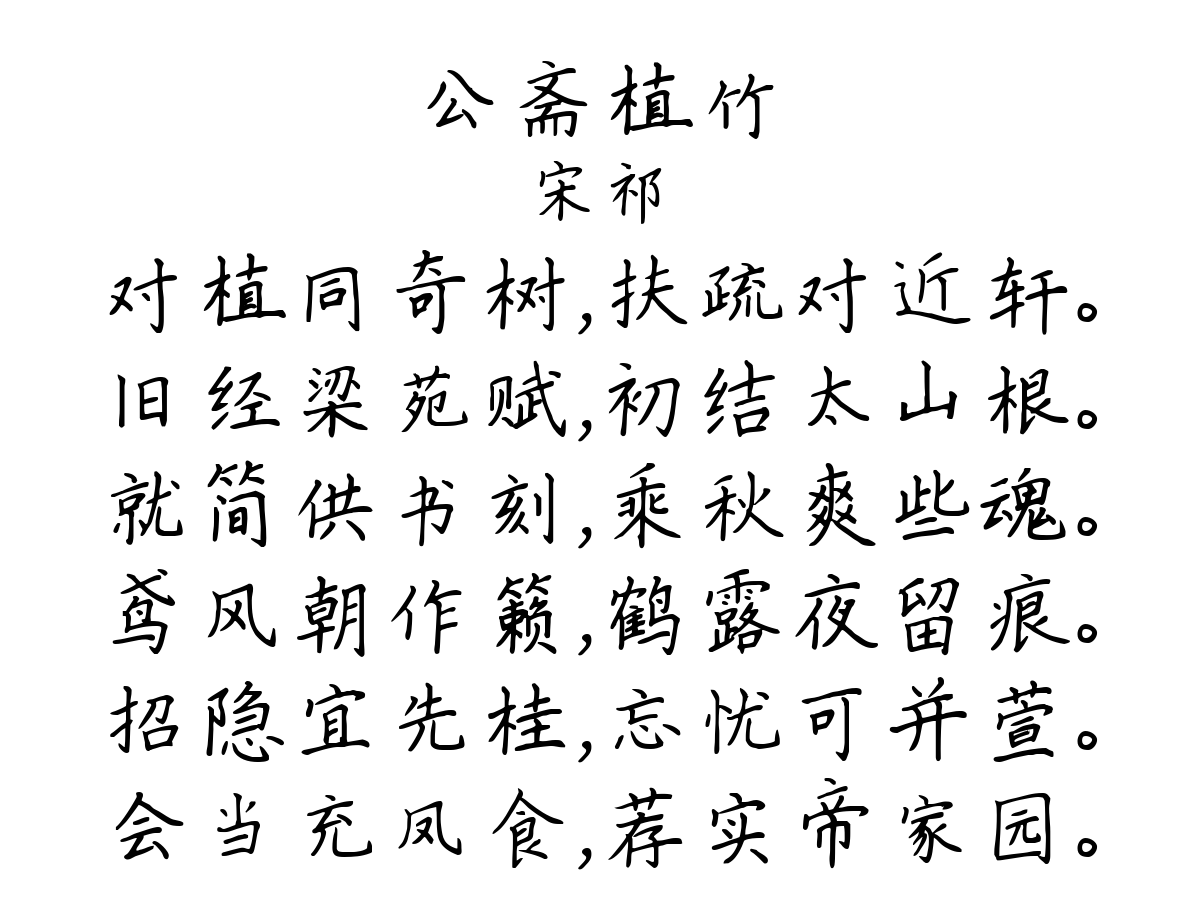 公斋植竹
宋祁
对植同奇树,扶疏对近轩。
旧经梁苑赋,初结太山根。
就简供书刻,乘秋爽些魂。
鸢风朝作籁,鹤露夜留痕。
招隐宜先桂,忘忧可并萱。
会当充凤食,荐实帝家园。